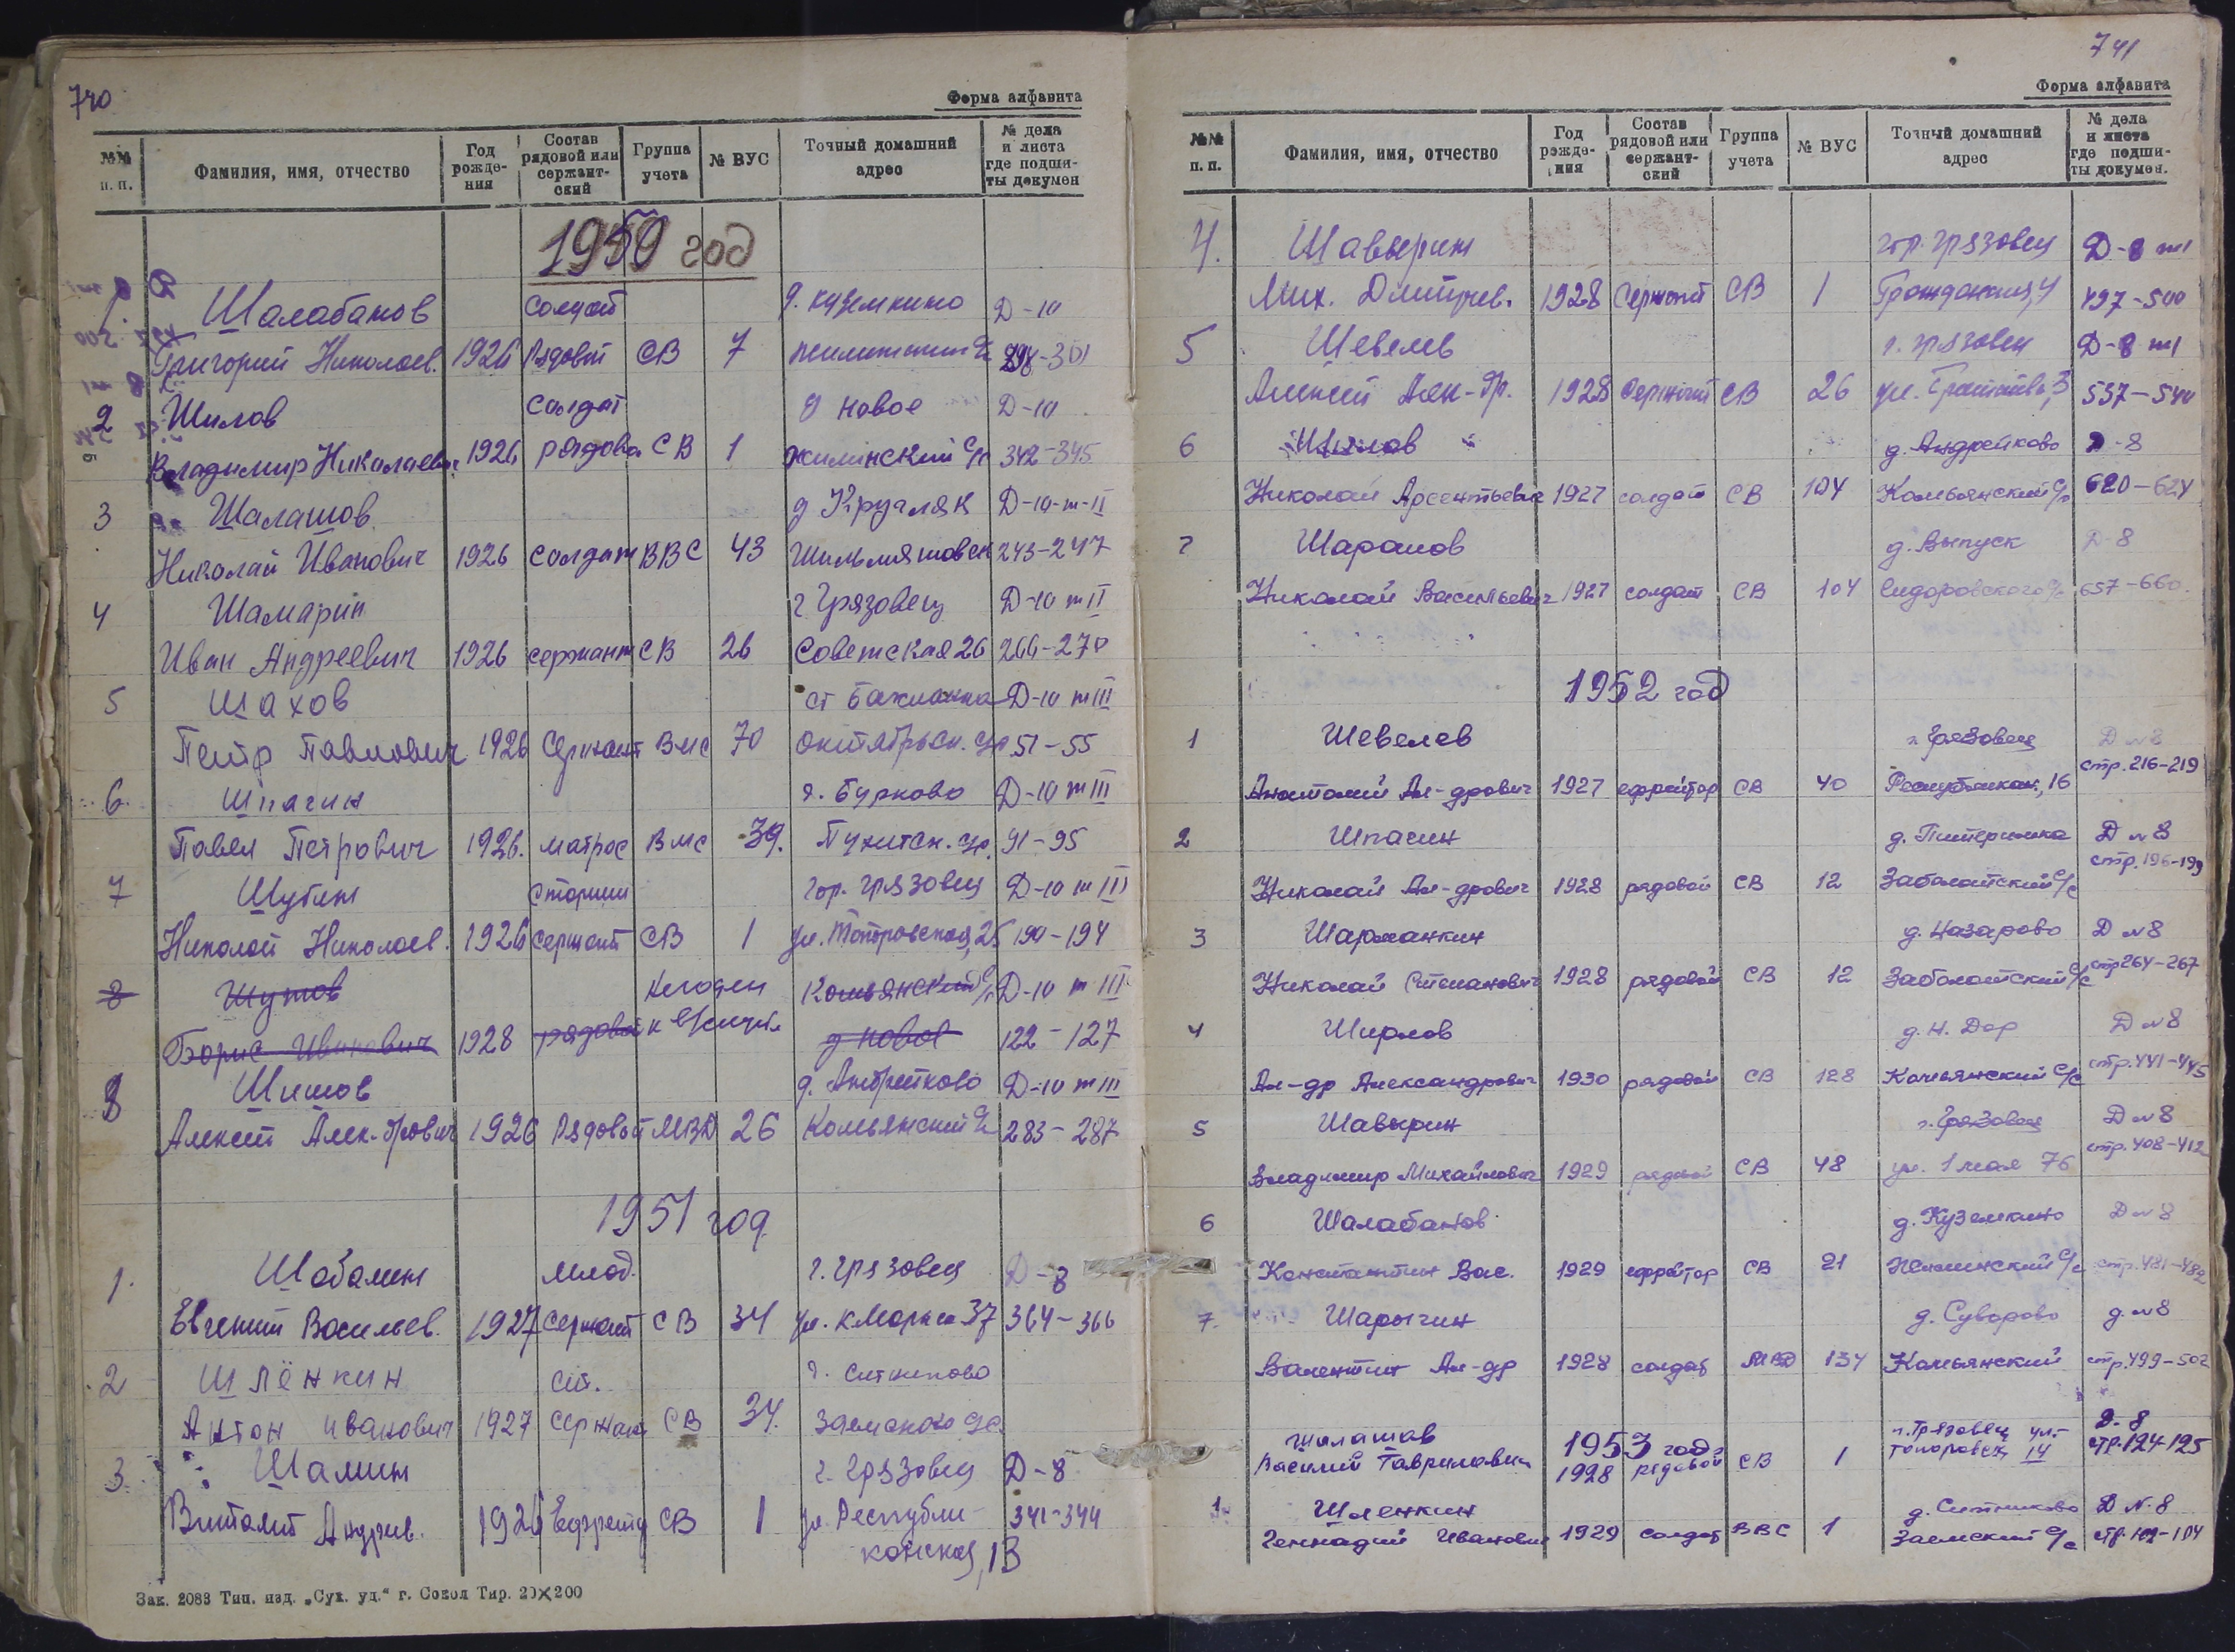 740
Форма алфавита
№№ п. п. Фамилия, имя, отчество Год рожде-ния Состав рядовой или сержант-ский Группа учета № ВУС Точный домашний адрес № дела и листа где подши-ты докумен
1950 год
Шалабанов солдат д. Куземкино Д-10
Григорий Николаев. 1926 Рядовой СВ 7 298-301
2 Шилов солдат д Новое Д-10
Владимир Николаевич 1926 рядовой СВ 1 жилинский с/с 342-345
3 Шалашов д Кругляк Д-10-т-II
Николай Иванович 1926 солдат ВВС 43 243-247
4 Шамарин г Грязовец Д-10 т II
Иван Андреевич 1926 сержант СВ 26 Советская 26 266-270
5 Шахов ст Бакланка Д-10 т III
Петр Павлович 1926 Сержант ВМС 70 октябрьск. с/с 51-55
6. Шпагин д. Бурково Д-10 т III
Павел Петрович 1926. матрос ВМС 39. 91-95
7 Шубин старший гор. Грязовец Д-10 т III
Николай Николаев. 1926 сержант СВ 1 190-194
8 Шутов Негоден Комьянский с/с Д-10 т III
Борис Иванович 1928 рядовой к в/службе д Новое 122-127
8 Шишов д. Андрейково Д-10 т III
Алексей Алек-дрович 1926 Рядовой МВД 26 Комьянский с/с 283-287
1951 год
1. Шабалин млад. г. Грязовец Д-8
Евгений Васильев. 1927 сержант СВ 34 ул. К Маркса 37 364-366
2 Шлёнкин ст. д. Ситниково
Антон Иванович 1927 сержант СВ 34. Заемского с/с.
3. Шалин г. Грязовец Д-8
Виталий Андрив. 1926 Ефрейтор СВ 1 ул. Республи- 341-344
канская, 13
Зак. 2083 Тип. изд. „Сух. уд.“ г. Сокол Тир. 20×200
741
Форма алфавита
№№ п. п. Фамилия, имя, отчество Год рожде-ния Состав рядовой или сержант-ский Группа учета № ВУС Точный домашний адрес № дела и листа где подши-ты докумен.
4. Шавырин гор. Грязовец Д-8 т 1
Мих. Дмитриев. 1928 Сержант СВ 1 Гражданская, 4 497-500
5 Шевелев г. Грязовец Д-8 т 1
Алексей Алек-др. 1928 Сержант СВ 26 537-540
6 Шилов д. Андрейково Д-8
Николай Арсентьевич 1927 солдат СВ 104 Комьянский с/с 620-624
7 Шарапов д. Выпуск Д-8
Николай Васильевич 1927 солдат СВ 104 Сидоровского с/с 657-660.
1952 год
1 Шевелев г. Грязовец Д №8
Анатолий Ал-дрович 1927 ефрейтор СВ 40 Республикан., 16 стр. 216-219
2 Шпагин д. Питеримка Д №8
Николай Ал-дрович 1928 рядовой СВ 12 Заболотский с/с стр. 196-199
3 Шарманкин д. Назарово Д №8
Николай Степанович 1928 рядовой СВ 12 Заболотский с/с стр 264-267
4 Ширлов д. Н. Дор Д №8
Ал-др Александрович 1930 рядовой СВ 128 Комьянский с/с стр. 441-445
5 Шавырин г. Грязовец Д №8
Владимир Михайлович 1929 рядовой СВ 48 ул. 1 мая 76 стр. 408-412
6 Шалабанов д. Куземкино Д №8
Константин Вас. 1929 ефрейтор СВ 21 Жилинский с/с стр. 481-482
7. Шарыгин д. Суворово д. №8
Валентин Ал-др 1928 солдат МВД 134 Комьянский стр. 499-502
1953 год
Шалашов г. Грязовец ул. Д-8
Василий Гаврилович 1928 рядовой СВ 1 Топоровск, 14 стр. 124-125
1. Шленкин д. Ситниково Д №8
Геннадий Иванович 1929 солдат ВВС 1 Заемский с/с стр. 102-104